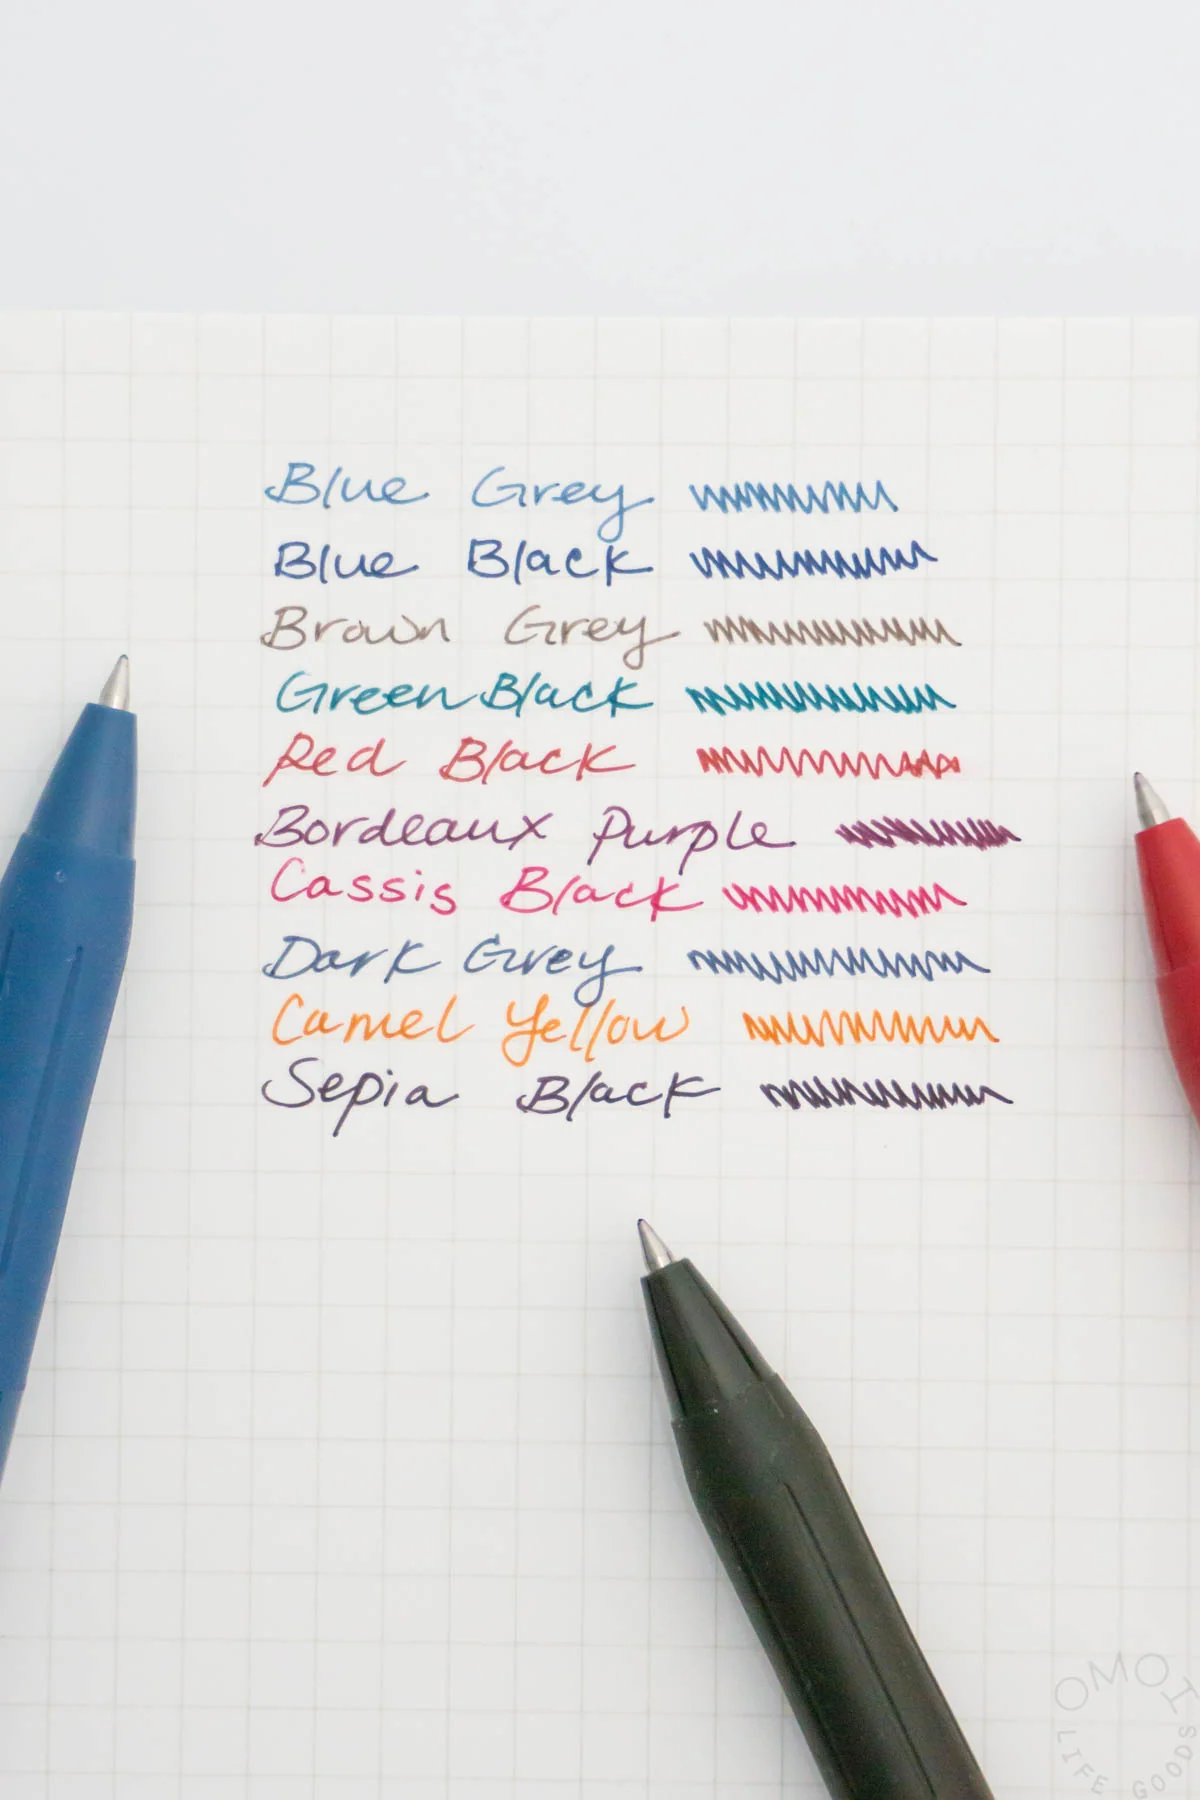 Blue Grey
Blue Black
Brown Grey
Green Black
Red Black
Bordeaux Purple
Cassis Black
Dark Grey
Camel Yellow
Sepia Black
OMOI
LIFE GOODS